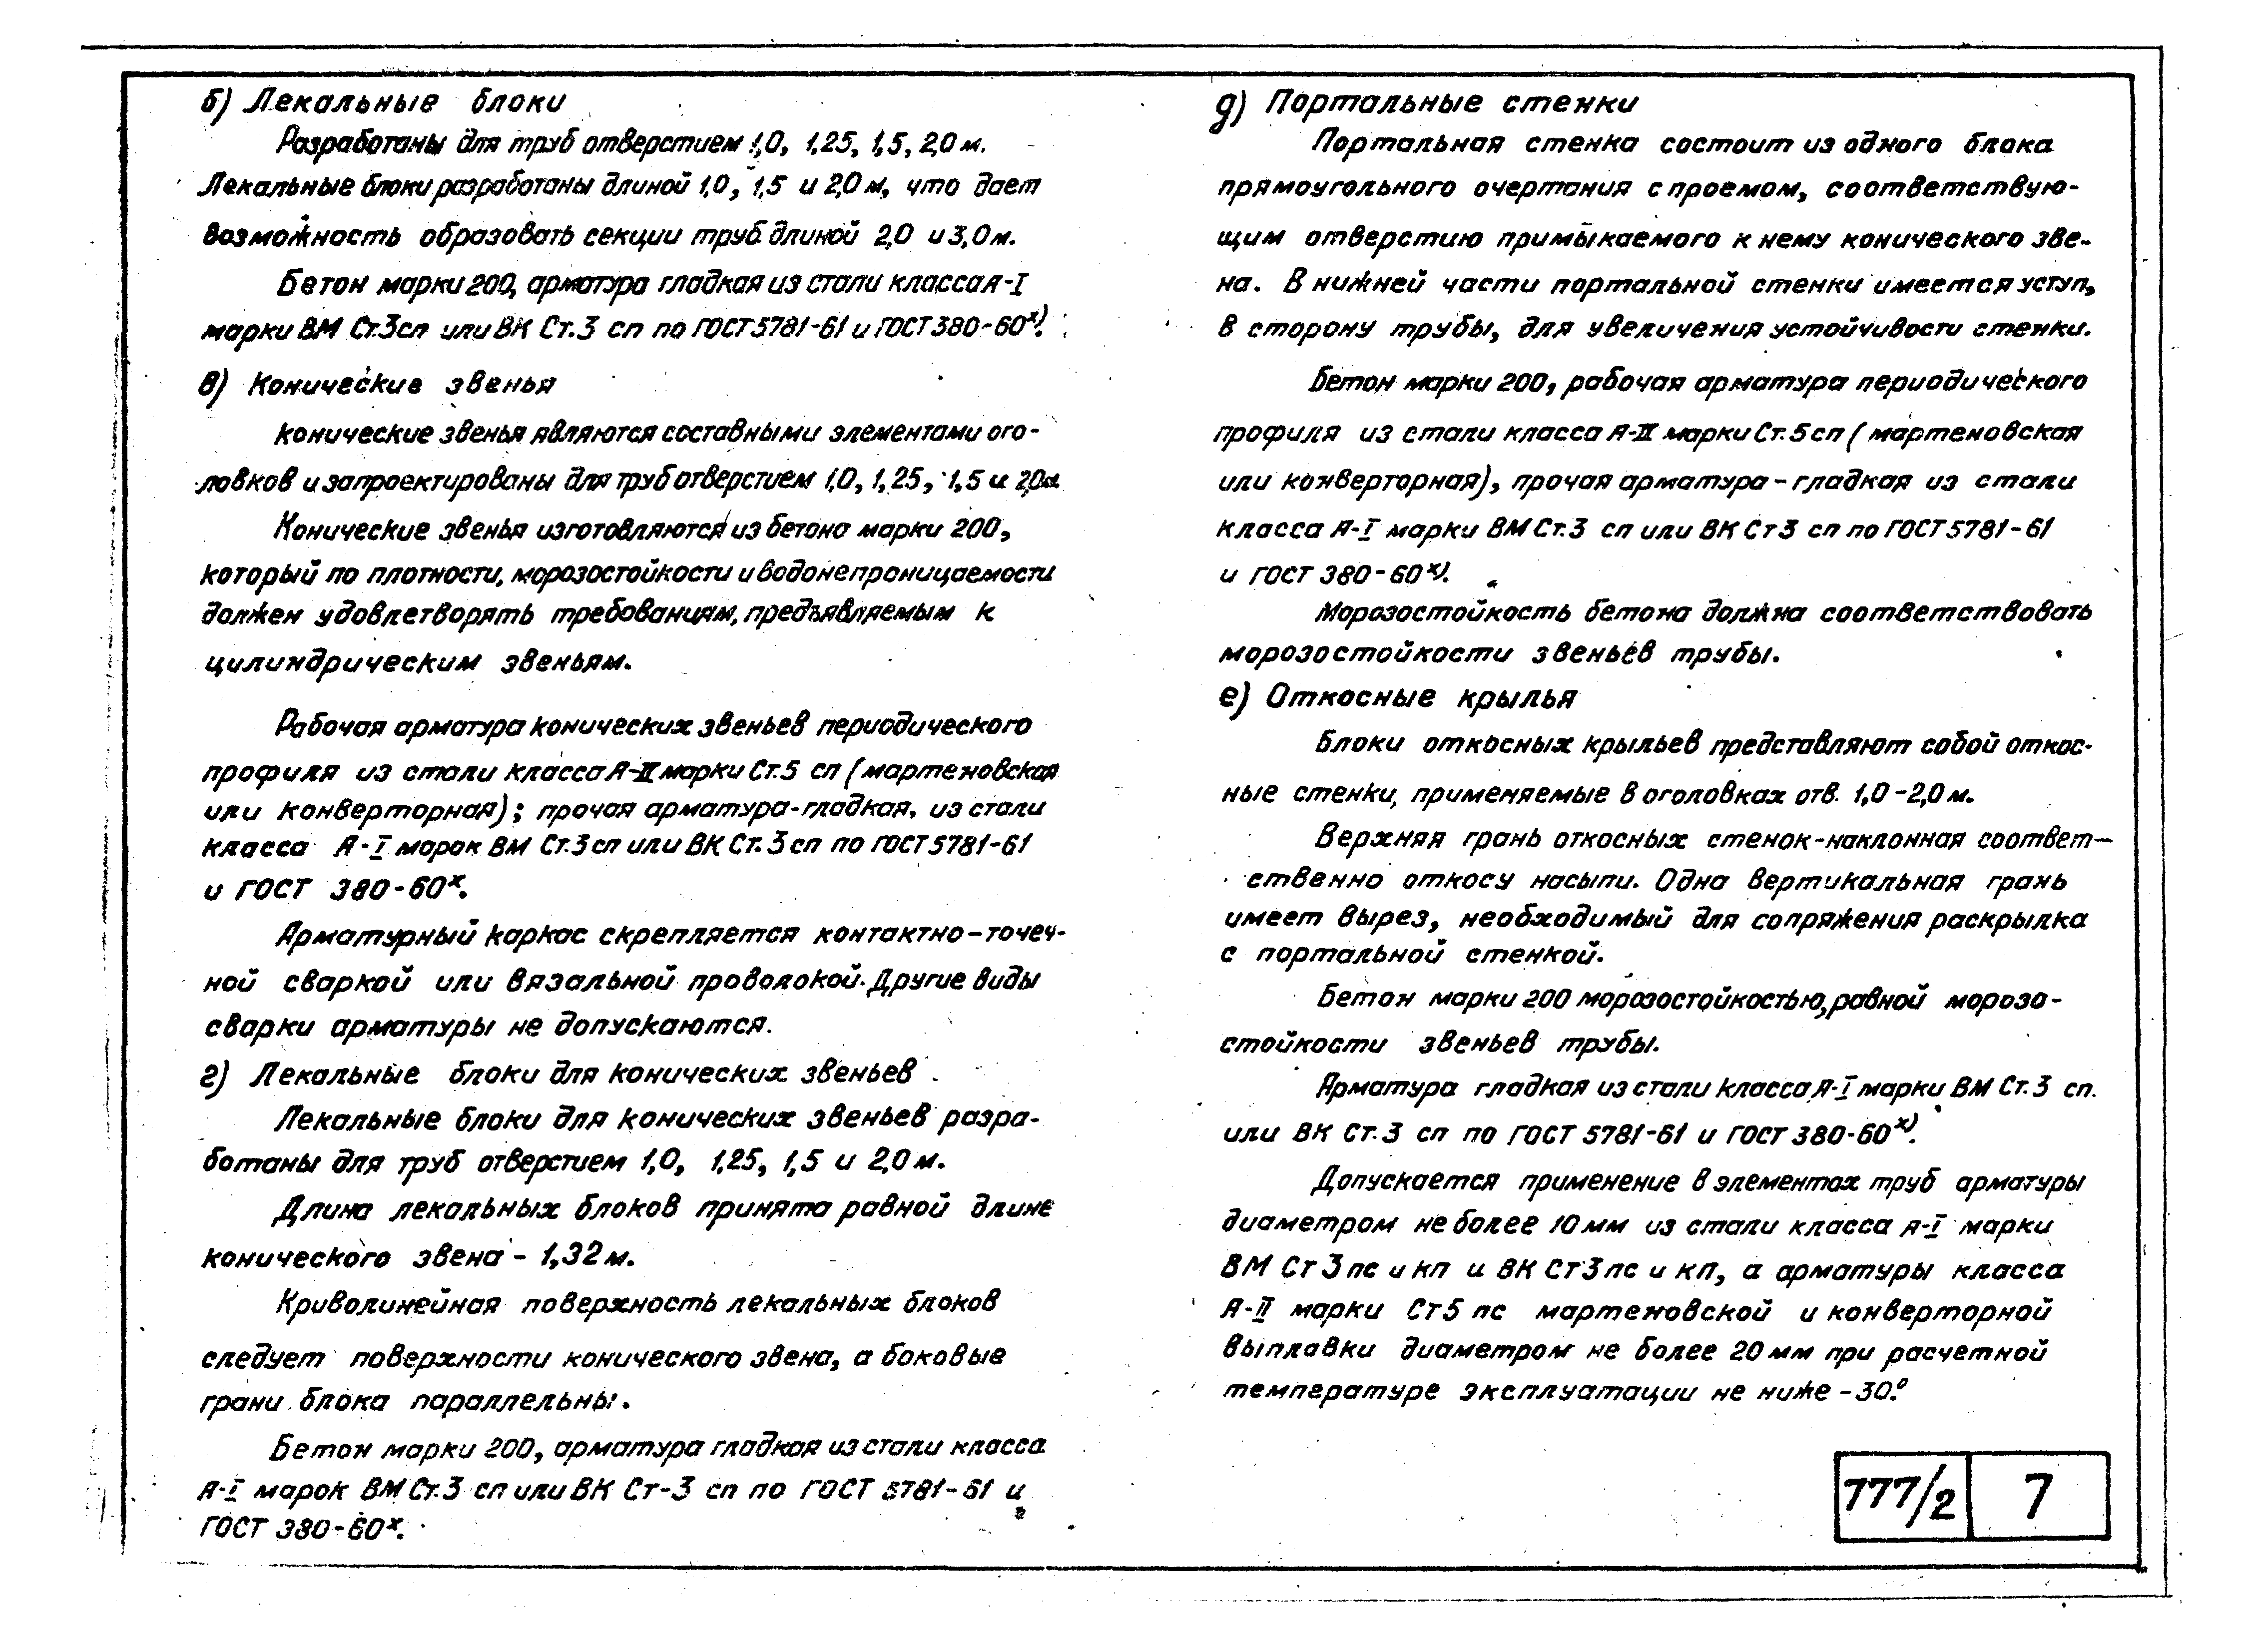 б) Лекальные блоки
Разработаны для труб отверстием 1,0, 1,25, 1,5, 2,0 м.
Лекальные блоки разработаны длиной 1,0, 1,5 и 2,0 м, что дает
возможность образовать секции труб длиной 2,0 и 3,0 м.
Бетон марки 200, арматура гладкая из стали класса А-I
марки ВМ Ст.3сп или ВК Ст.3 сп по ГОСТ 5781-61 и ГОСТ 380-60х).
в) Конические звенья
Конические звенья являются составными элементами ого-
ловков и запроектированы для труб отверстием 1,0, 1,25, 1,5 и 2,0м
Конические звенья изготовляются из бетона марки 200,
который по плотности, морозостойкости и водонепроницаемости
должен удовлетворять требованиям, предъявляемым к
цилиндрическим звеньям.
Рабочая арматура конических звеньев периодического
профиля из стали класса А-II марки Ст.5 сп (мартеновская
или конверторная); прочая арматура-гладкая, из стали
класса А-I марок ВМ Ст.3 сп или ВК Ст.3 сп по ГОСТ 5781-61
и ГОСТ 380-60х.
Арматурный каркас скрепляется контактно-точеч-
ной сваркой или вязальной проволокой. Другие виды
сварки арматуры не допускаются.
г) Лекальные блоки для конических звеньев
Лекальные блоки для конических звеньев разра-
ботаны для труб отверстием 1,0, 1,25, 1,5 и 2,0 м.
Длина лекальных блоков принята равной длине
конического звена - 1,32 м.
Криволинейная поверхность лекальных блоков
следует поверхности конического звена, а боковые
грани блока параллельны.
Бетон марки 200, арматура гладкая из стали класса
А-I марок ВМ Ст.3 сп или ВК Ст-3 сп по ГОСТ 5781-61 и
ГОСТ 380-60х.
д) Портальные стенки
Портальная стенка состоит из одного блока
прямоугольного очертания с проемом, соответствую-
щим отверстию примыкаемого к нему конического зве-
на. В нижней части портальной стенки имеется уступ,
в сторону трубы, для увеличения устойчивости стенки.
Бетон марки 200, рабочая арматура периодического
профиля из стали класса А-II марки Ст.5 сп (мартеновская
или конверторная), прочая арматура - гладкая из стали
класса А-I марки ВМ Ст.3 сп или ВК Ст3 сп по ГОСТ 5781-61
и ГОСТ 380-60х).
Морозостойкость бетона должна соответствовать
морозостойкости звеньев трубы.
е) Откосные крылья
Блоки откосных крыльев представляют собой откос-
ные стенки, применяемые в оголовках отв. 1,0-2,0 м.
Верхняя грань откосных стенок-наклонная соответ-
ственно откосу насыпи. Одна вертикальная грань
имеет вырез, необходимый для сопряжения раскрылка
с портальной стенкой.
Бетон марки 200 морозостойкостью, равной морозо-
стойкости звеньев трубы.
Арматура гладкая из стали класса А-I марки ВМ Ст.3 сп.
или ВК Ст.3 сп по ГОСТ 5781-61 и ГОСТ 380-60х).
Допускается применение в элементах труб арматуры
диаметром не более 10 мм из стали класса А-I марки
ВМ Ст 3 пс и кп и ВК Ст3 пс и кп, а арматуры класса
А-II марки Ст5 пс мартеновской и конверторной
выплавки диаметром не более 20 мм при расчетной
температуре эксплуатации не ниже -30.°
777/2 7